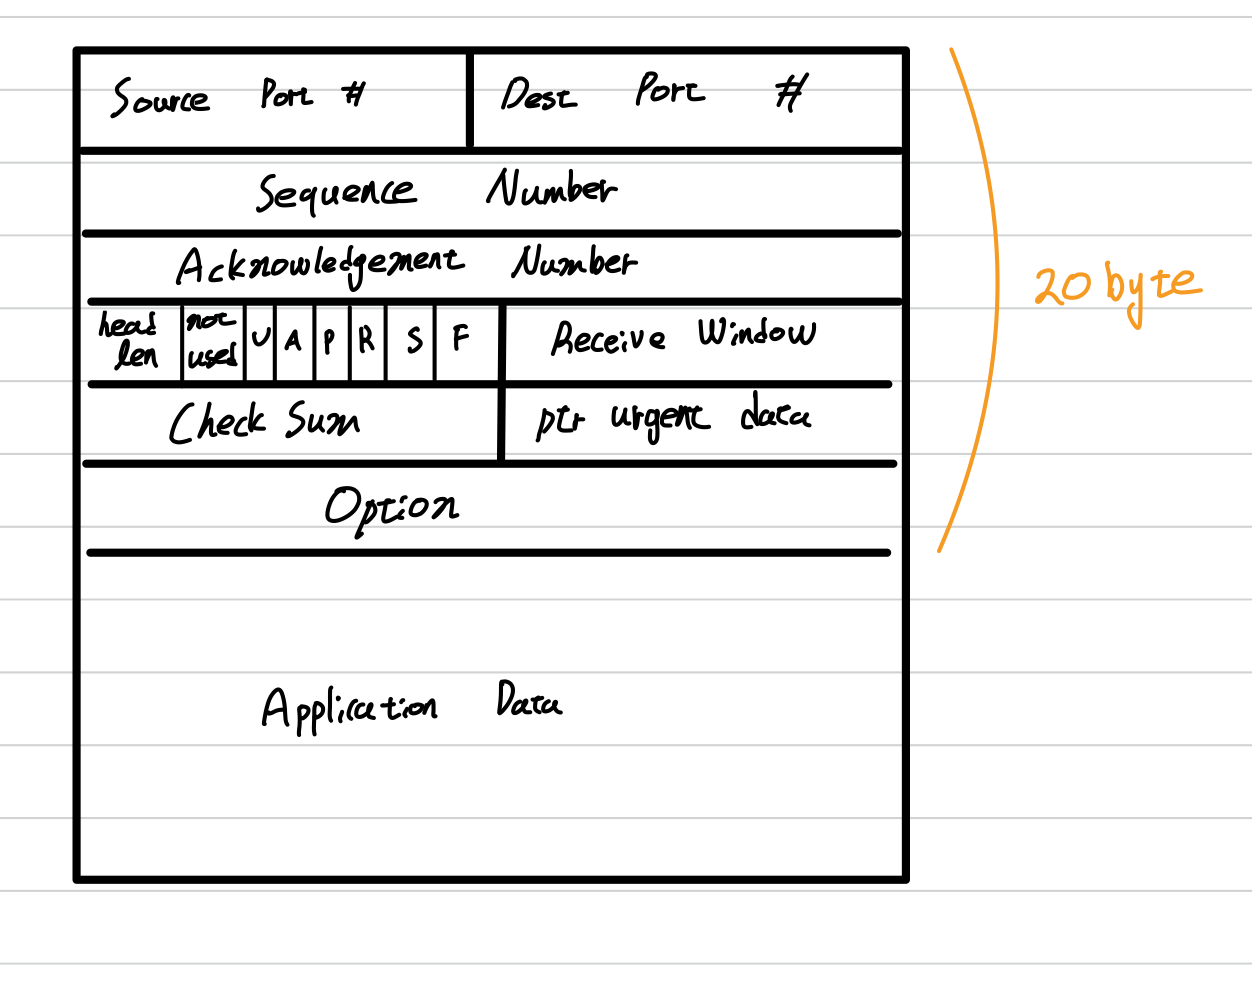 Source Port # Dest Port #
Sequence Number
Acknowledgement Number
20 byte
head len not used U A P R S F Receive Window
Check Sum ptr urgent data
Option
Application Data